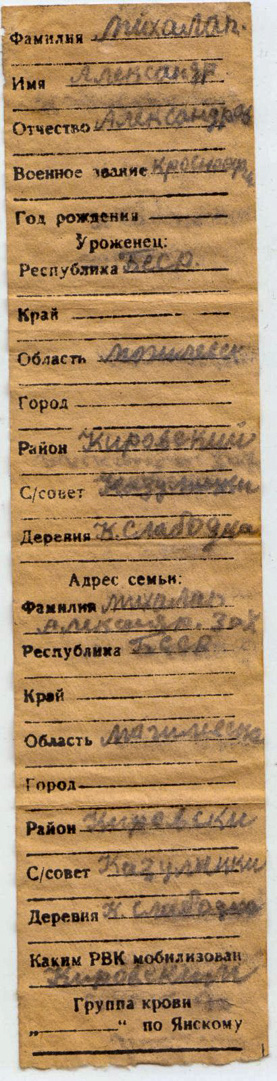 Фамилия Михалап.
Имя Александр
Отчество Александров
Военное звание Красноар
Год рождения
Уроженец:
Республика БССР.
Край
Область Могилевск
Город
Район Кировский
С/совет Казулички
Деревня К. Слабодка
Адрес семьи:
Фамилия Михалап
Александр. Зах
Республика БССР
Край
Область Могилевска
Город
Район Кировски
С/совет Казулички
Деревня К. Слабодка
Каким РВК мобилизован
Кировским
Группа крови
„ “ по Янскому